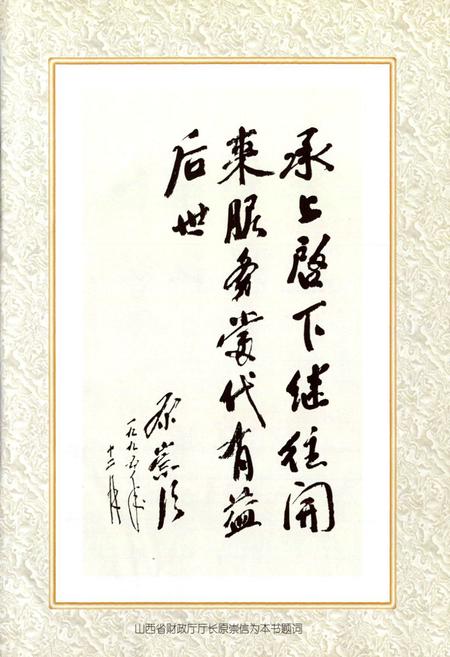 承上启下继往开
来服务当代有益
后世
原崇信
一九九五年
十二月
山西省财政厅厅长原崇信为本书题词